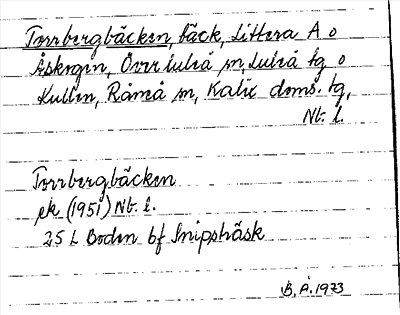 Torrbergbäcken, bäck, Littera A o
Åskogen, Överluleå sn, Luleå tg o
Kullen, Råneå sn, Kalix doms. tg,
Nb. l.
Torrbergbäcken
ek (1951) Nb. l.
25 L Boden bf Snipphäsk
B. Å. 1973